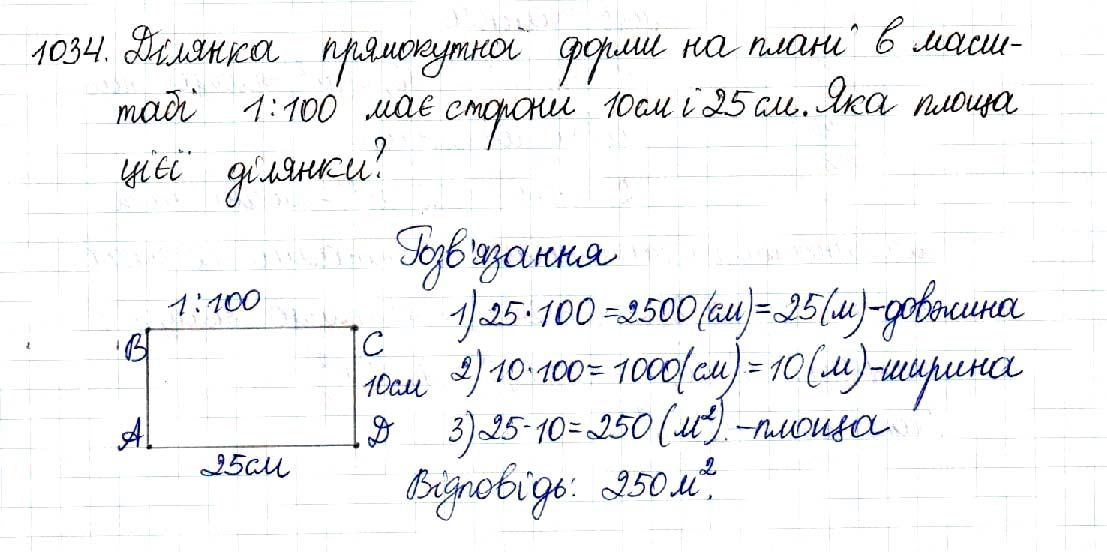 1034. Ділянка прямокутної форми на плані в масш-
табі 1:100 має сторони 10см і 25см. Яка площа
цієї ділянки?
Розв'язання
1:100
B
C
10см
A
D
25см
1) 25·100=2500(см)=25(м)-довжина
2) 10·100=1000(см)=10(м)-ширина
3) 25·10=250(м²).-площа
Відповідь: 250м².